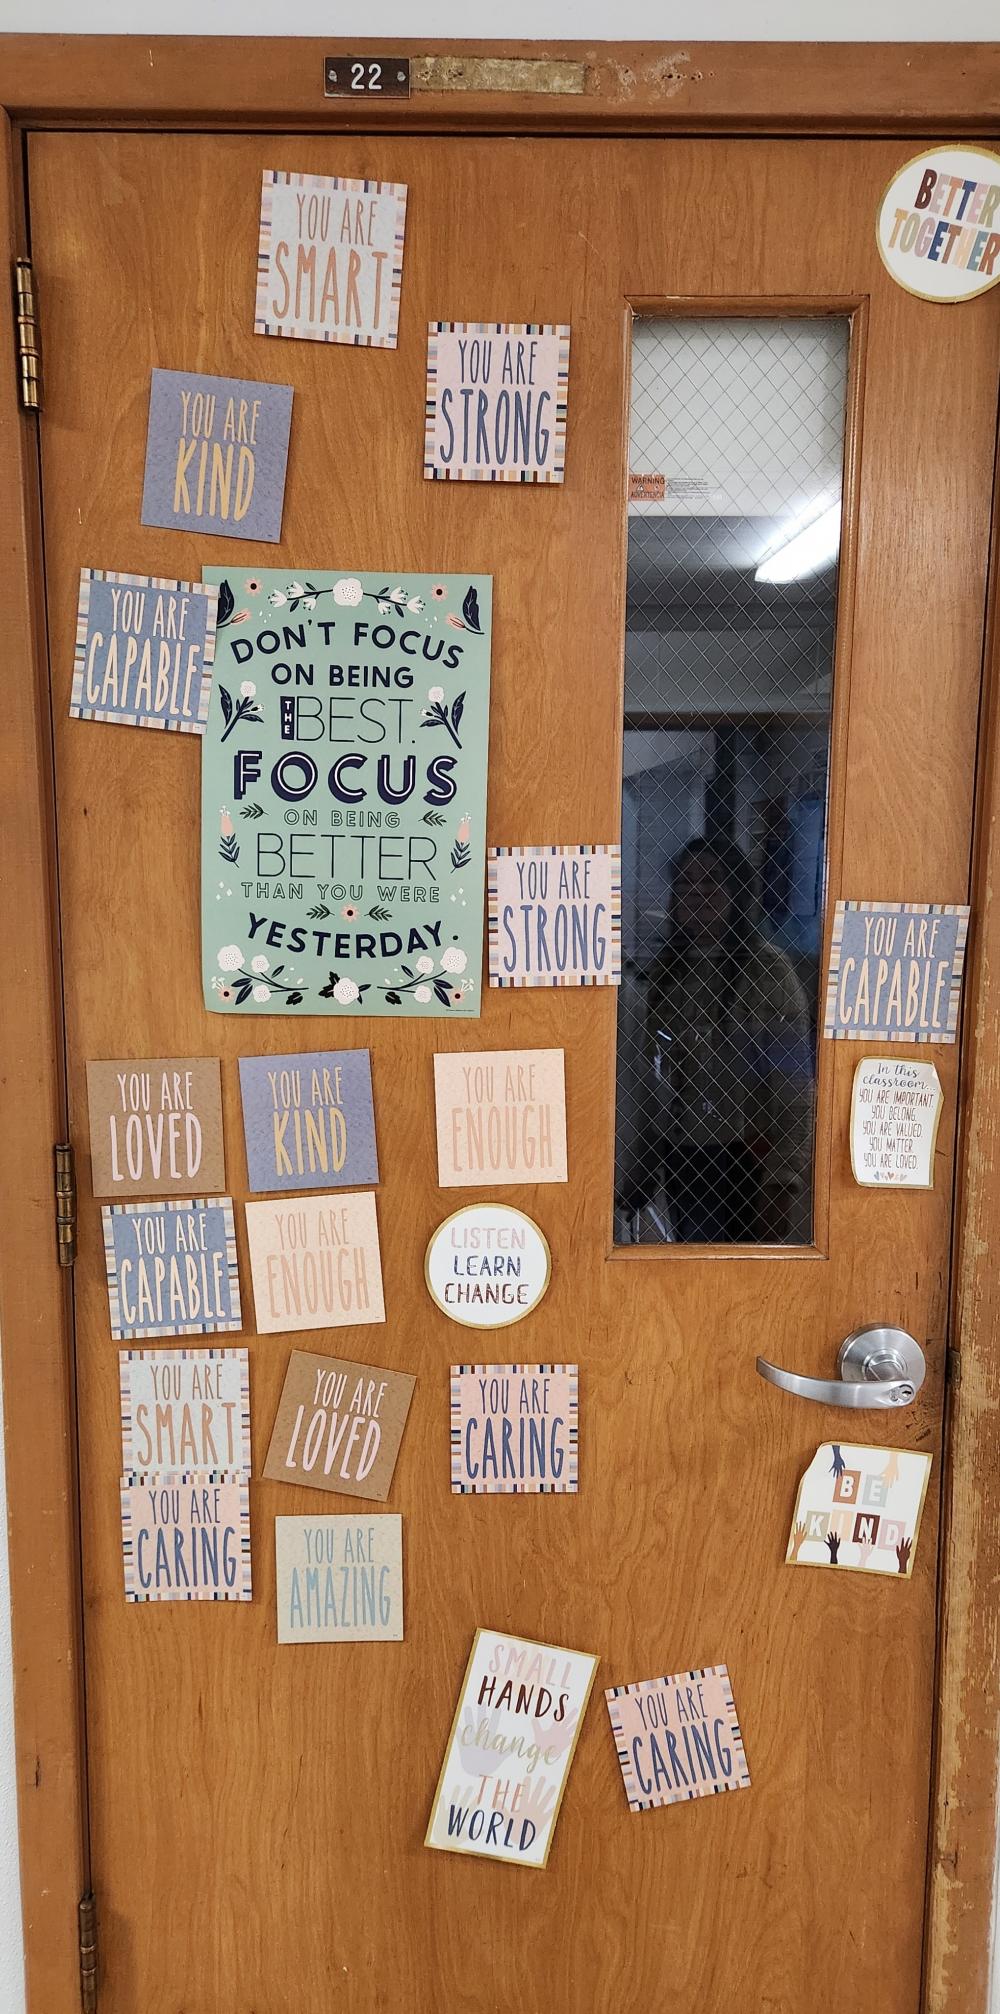 22
BETTER
TOGETHER
YOU ARE
SMART
YOU ARE
STRONG
YOU ARE
KIND
WARNING
ADVERTENCIA
YOU ARE
CAPABLE
DON'T FOCUS
ON BEING
THE BEST.
FOCUS
ON BEING
BETTER
THAN YOU WERE
YESTERDAY.
YOU ARE
STRONG
YOU ARE
CAPABLE
YOU ARE
LOVED
YOU ARE
KIND
YOU ARE
ENOUGH
In this
classroom...
YOU ARE IMPORTANT.
YOU BELONG.
YOU ARE VALUED.
YOU MATTER.
YOU ARE LOVED.
YOU ARE
CAPABLE
YOU ARE
ENOUGH
LISTEN
LEARN
CHANGE
YOU ARE
SMART
YOU ARE
LOVED
YOU ARE
CARING
BE
KIND
YOU ARE
CARING
YOU ARE
AMAZING
SMALL
HANDS
change
THE
WORLD
YOU ARE
CARING